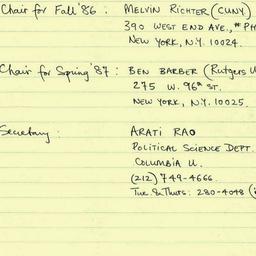 Chair for Fall '86 : MELVIN RICHTER (CUNY)
390 WEST END AVE., # PH
NEW YORK, N.Y. 10024.
Chair for Spring '87 : BEN BARBER (Rutgers U
275 W. 96th ST.
NEW YORK, N.Y. 10025.
Secretary : ARATI RAO
POLITICAL SCIENCE DEPT.
COLUMBIA U.
(212) 749-4666
Tue & Thurs: 280-4048 (